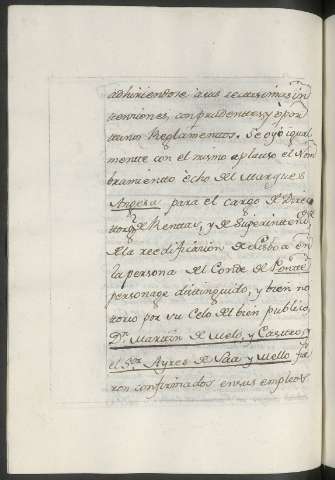 adhiriendose a sus rectisimas in
tenciones, con prudentes y opor
tunos Reglamentos. Se oyò igual
mente con el mismo aplauso el Nom
bramiento echo del Marques
Angexa para el cargo de Dire
ttor de Renttas, y de Superintend.te
de la reedificazion de Lisboa en
la persona del Conde de Pontte
personage distinguido, y bien no
torio por su Celo del bien publico,
Dn. Martin de Melo, y Castro,
el Sor. Ayres de Saa y Mello fue
ron confirmados en sus empleos